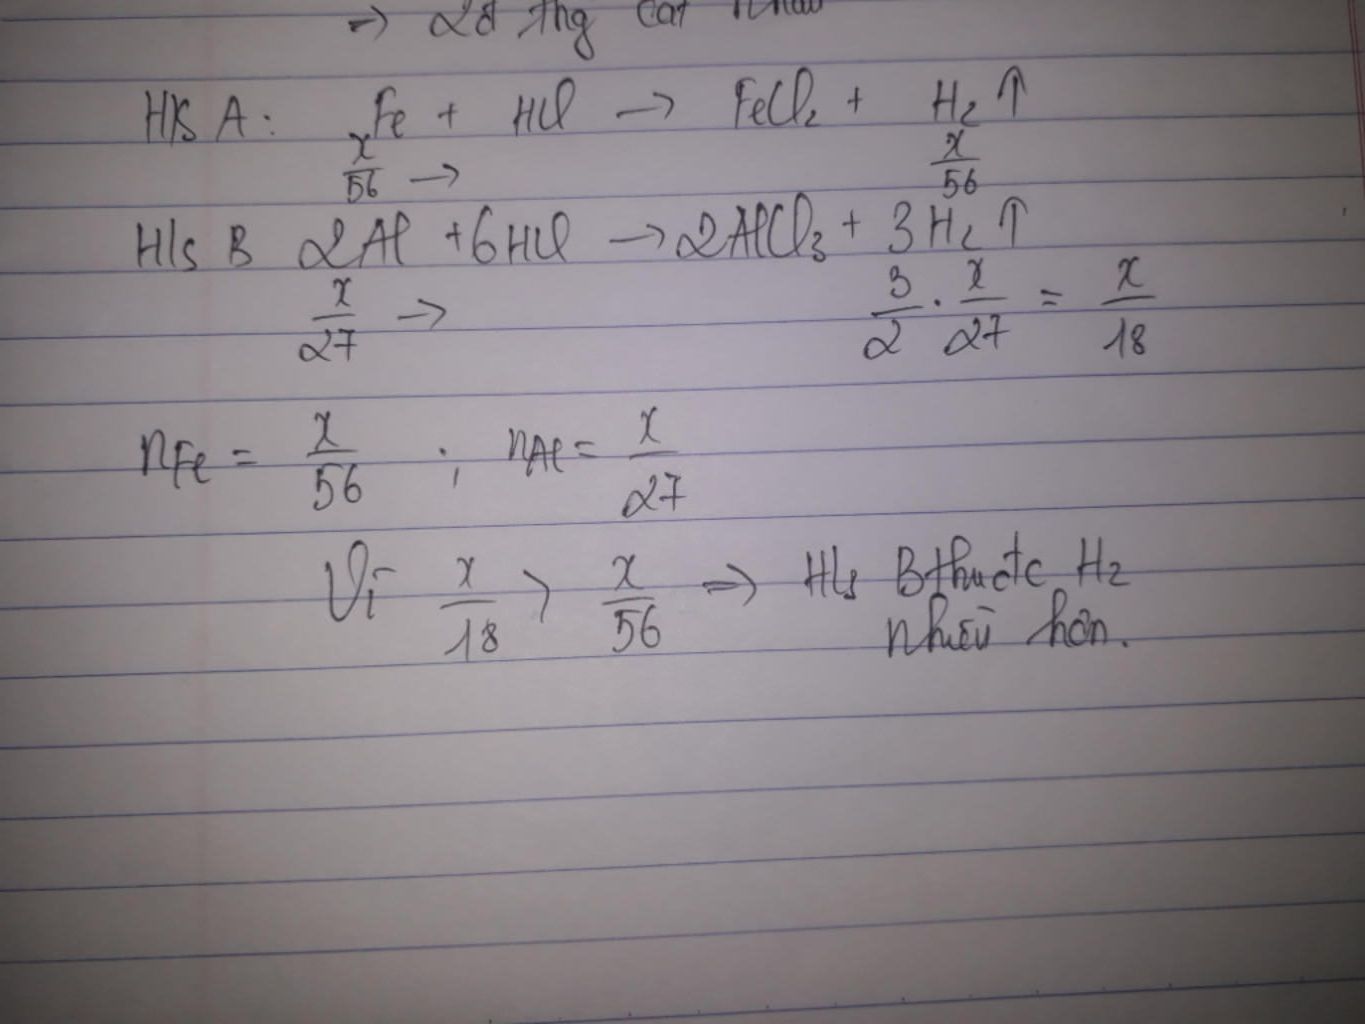 ⇒ 2đ thg cắt nhau
H/s A: Fe + HCl → FeCl₂ + H₂ ↑
x/56 → x/56
H/s B 2Al + 6HCl → 2AlCl₃ + 3H₂ ↑
x/27 → 3/2 . x/27 = x/18
nFe = x/56 ; nAl = x/27
Vì x/18 > x/56 ⇒ H/s B thu đc H₂
nhiều hơn.